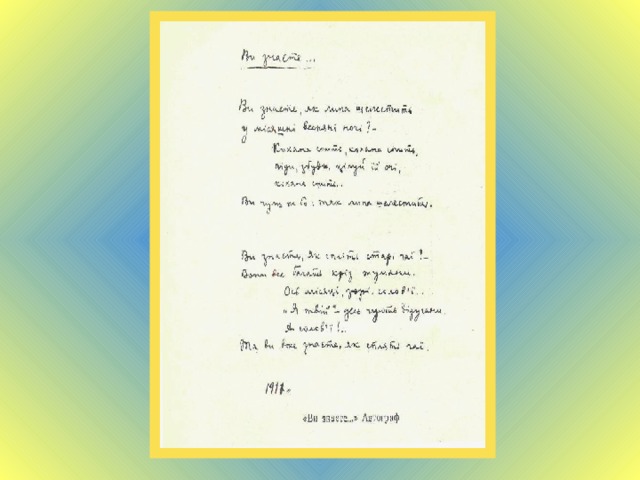 Ви знаєте...
Ви знаєте, як липа шелестить
у місячні весняні ночі? –
Кохана спить, кохана спить,
піди, збуди, цілуй їй очі,
кохана спить..
Ви чули ж бо: так липа шелестить.
Ви знаєте, як сплять старі гаї? –
Вони все бачать крізь тумани.
Ось місяць, зорі, солов'ї..
„Я твій“ – десь чують дідугани.
А солов'ї!..
Та ви вже знаєте, як сплять гаї.
«Ви знаєте...» Автограф